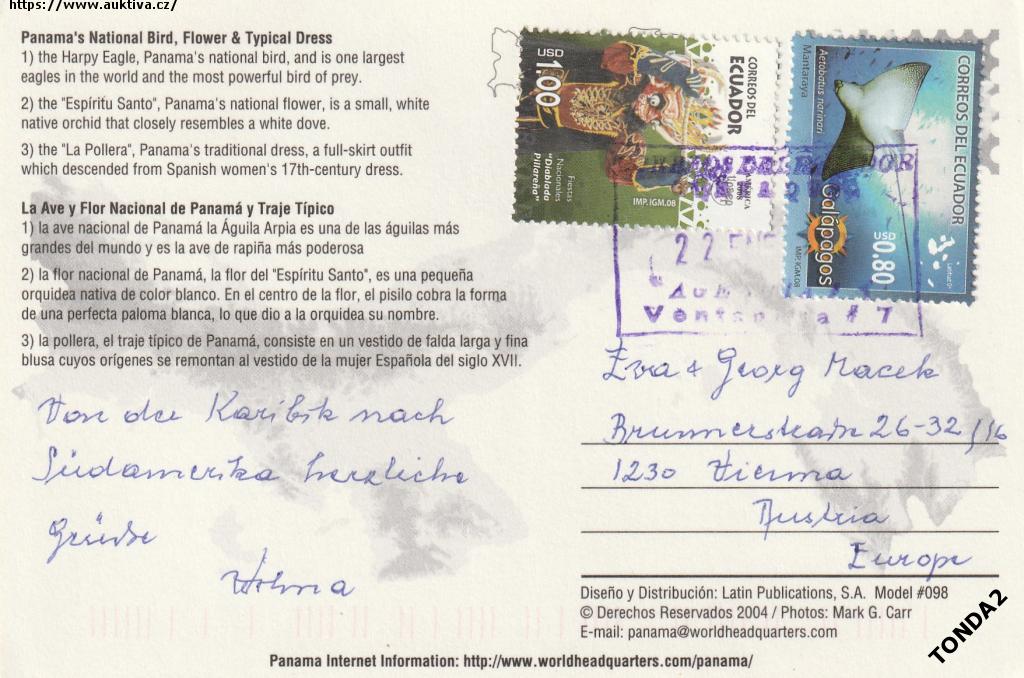 https://www.auktiva.cz/
Panama's National Bird, Flower & Typical Dress
1) the Harpy Eagle, Panama's national bird, and is one largest
eagles in the world and the most powerful bird of prey.
2) the "Espíritu Santo", Panama's national flower, is a small, white
native orchid that closely resembles a white dove.
3) the "La Pollera", Panama's traditional dress, a full-skirt outfit
which descended from Spanish women's 17th-century dress.
La Ave y Flor Nacional de Panamá y Traje Típico
1) la ave nacional de Panamá la Águila Arpia es una de las águilas más
grandes del mundo y es la ave de rapiña más poderosa
2) la flor nacional de Panamá, la flor del "Espíritu Santo", es una pequeña
orquidea nativa de color blanco. En el centro de la flor, el pisilo cobra la forma
de una perfecta paloma blanca, lo que dio a la orquidea su nombre.
3) la pollera, el traje típico de Panamá, consiste en un vestido de falda larga y fina
blusa cuyos orígenes se remontan al vestido de la mujer Española del siglo XVII.
Von der Karibik nach
Südamerika herzliche
Grüsse
USD 1.00
CORREOS DEL
ECUADOR
Fiestas
Nacionales
"Diablada
Pillareña"
IMP.IGM.08
Aetobatus narinari
Mantaraya
CORREOS DEL ECUADOR
Galápagos
USD
0.80
IMP.IGM.08
22
Eva + Georg Macek
Brunnerstraße 26-32/16
1230 Vienna
Austria
Europe
Diseño y Distribución: Latin Publications, S.A. Model #098
© Derechos Reservados 2004 / Photos: Mark G. Carr
E-mail: panama@worldheadquarters.com
Panama Internet Information: http://www.worldheadquarters.com/panama/
TONDA2